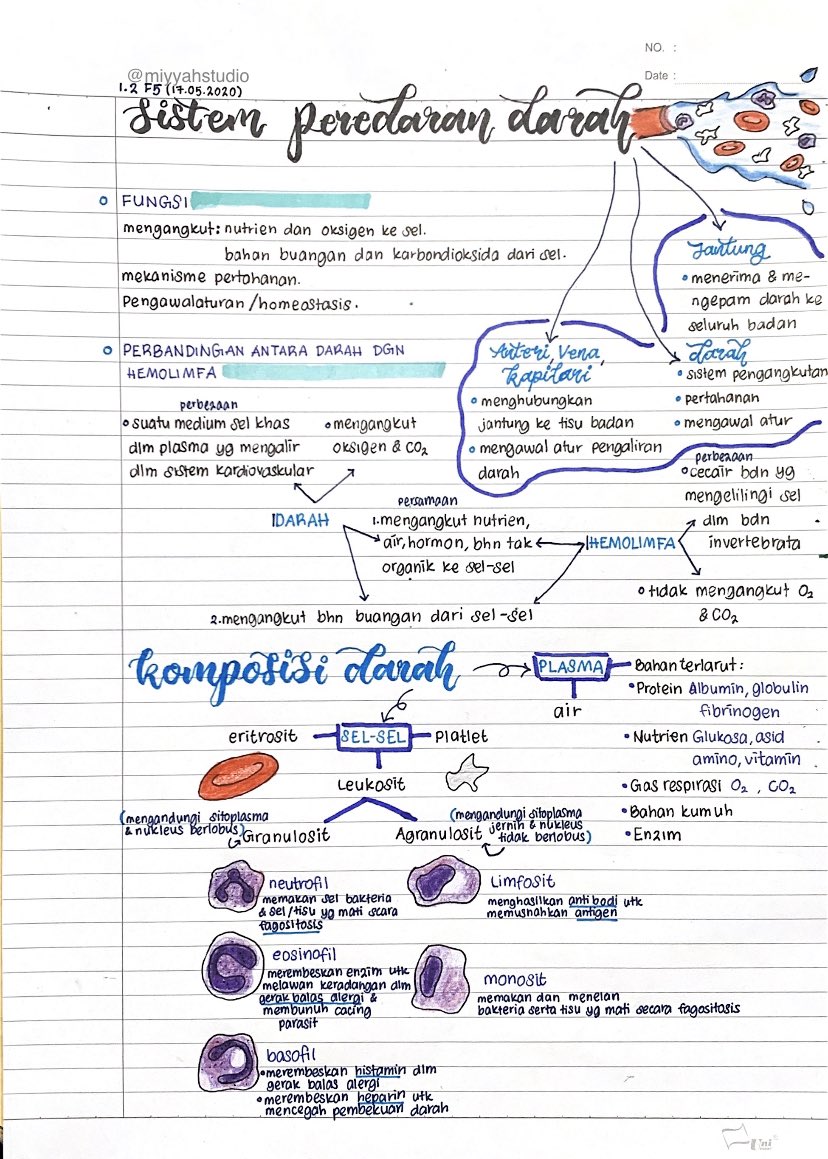 NO. :
Date :
@miyyahstudio
1.2 F5 (17.05.2020)
sistem peredaran darah
FUNGSI
mengangkut: nutrien dan oksigen ke sel.
bahan buangan dan karbondioksida dari sel.
mekanisme pertahanan.
Pengawalaturan / homeostasis.
Jantung
• menerima & me-
ngepam darah ke
seluruh badan
Arteri, Vena,
kapilari
• menghubungkan
jantung ke tisu badan
• mengawal atur pengaliran
darah
darah
• sistem pengangkutan
• pertahanan
• mengawal atur
PERBANDINGAN ANTARA DARAH DGN
HEMOLIMFA
perbezaan
• suatu medium sel khas
dlm plasma yg mengalir
dlm sistem kardiovaskular
• mengangkut
oksigen & CO₂
DARAH
persamaan
1. mengangkut nutrien,
air, hormon, bhn tak
organik ke sel-sel
2. mengangkut bhn buangan dari sel-sel
HEMOLIMFA
perbezaan
• cecair bdn yg
mengelilingi sel
dlm bdn
invertebrata
• tidak mengangkut O₂
& CO₂
komposisi darah
PLASMA
air
Bahan terlarut:
• Protein Albumin, globulin
fibrinogen
• Nutrien Glukosa, asid
amino, vitamin
• Gas respirasi O₂, CO₂
• Bahan kumuh
• Enzim
SEL-SEL
eritrosit
Platlet
Leukosit
(mengandungi sitoplasma
& nukleus berlobus)
Granulosit
(mengandungi sitoplasma
jernih & nukleus
tidak berlobus)
Agranulosit
neutrofil
memakan sel bakteria
& sel/tisu yg mati scara
fagositosis
eosinofil
merembeskan enzim utk
melawan keradangan dlm
gerak balas alergi &
membunuh cacing
parasit
basofil
• merembeskan histamin dlm
gerak balas alergi
• merembeskan heparin utk
mencegah pembekuan darah
Limfosit
menghasilkan antibodi utk
memusnahkan antigen
monosit
memakan dan menelan
bakteria serta tisu yg mati secara fagositosis
Uni